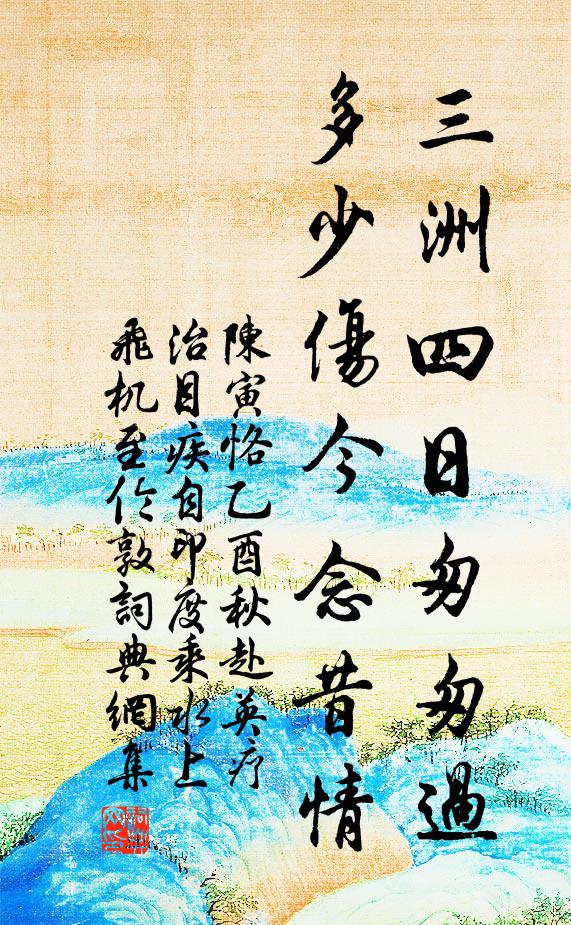 三洲四日匆匆過
多少傷今念昔情
陳寅恪乙酉秋赴英疗
治目疾自印度乘水上
飛机至伦敦詞典網集